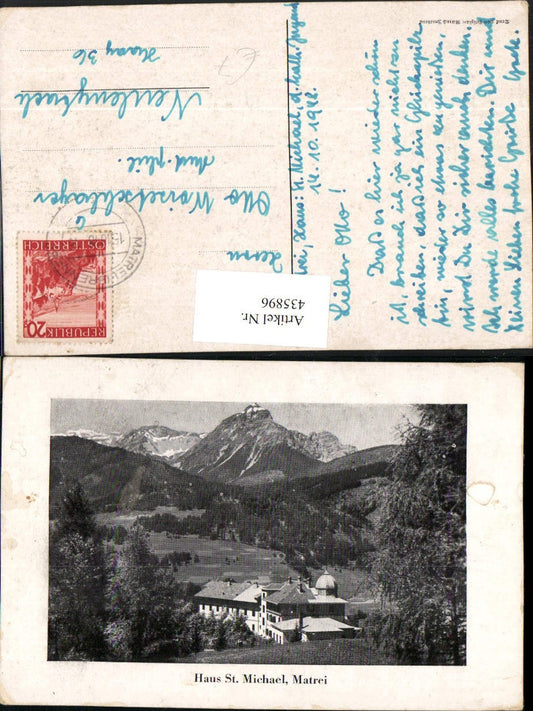 Matrei, Haus: St. Michael, d. kath. Jugend
14.10.1948.
Lieber Otto!
Daß es hier wieder schön
ist, brauch ich ja gar nicht zu
schreiben, daß ich ein Glückspilz
bin, wieder so etwas zu genießen,
wirst Du Dir sicher auch denken.
Ich werde alles berichten. Dir und
Deinen Lieben frohe Grüße
Herrn
Otto Worsetschläger
stud. phil.
Neulengbach
Haag 36
€7
REPUBLIK
20
ÖSTERREICH
MATREI
Artikel Nr.
435896
Haus St. Michael, Matrei